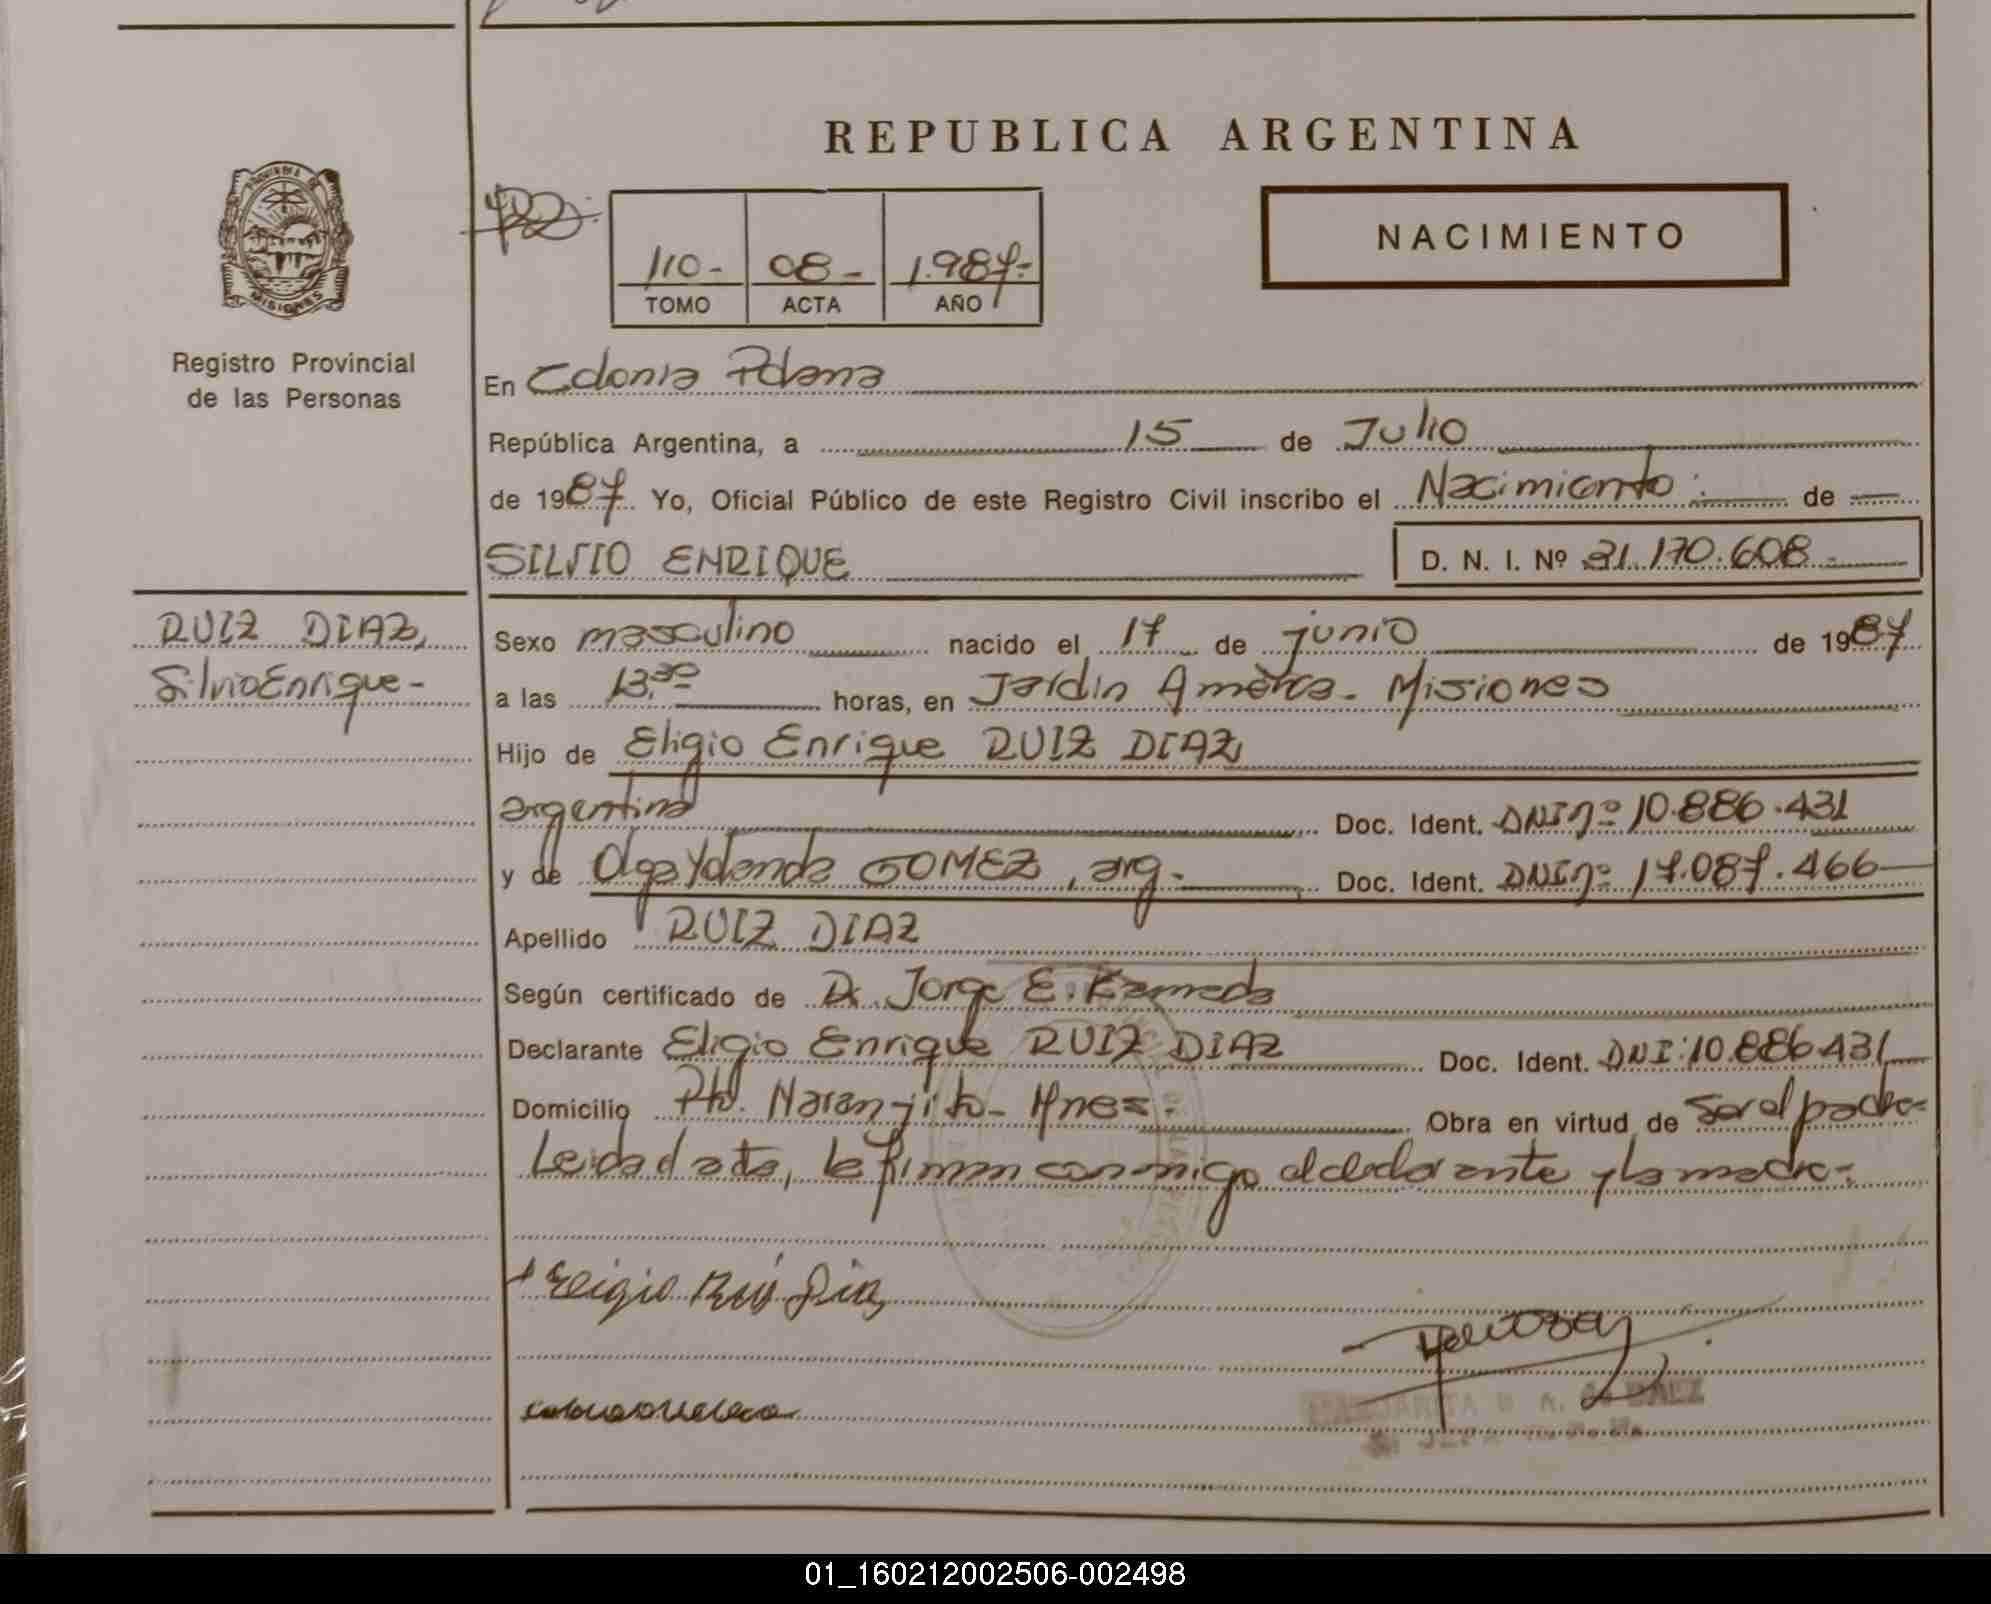 REPUBLICA ARGENTINA
PROVINCIA DE
MISIONES
Registro Provincial
de las Personas
110- 08- 1.987-
TOMO ACTA AÑO
NACIMIENTO
En Colonia Polana
República Argentina, a 15 de Julio
de 1987 Yo, Oficial Público de este Registro Civil inscribo el Nacimiento: de
SILVIO ENRIQUE D. N. I. Nº 31.170.608.-
RUIZ DIAZ,
Silvio Enrique-
Sexo masculino nacido el 17 de junio de 1987
a las 13,30 horas, en Jardín América- Misiones
Hijo de Eligio Enrique RUIZ DIAZ
argentino Doc. Ident. DNI nº 10.886.431
y de Olga Yolanda GOMEZ, arg.- Doc. Ident. DNI nº 17.087.466
Apellido RUIZ DIAZ
Según certificado de Dr. Jorge E. Kameda
Declarante Eligio Enrique RUIZ DIAZ Doc. Ident. DNI:10.886431
Domicilio Pto. Naranjito- Mnes-. Obra en virtud de ser el padre-
Leida el acta, la firman conmigo el declarante y la madre-
Eligio Ruiz Diaz
01_160212002506-002498